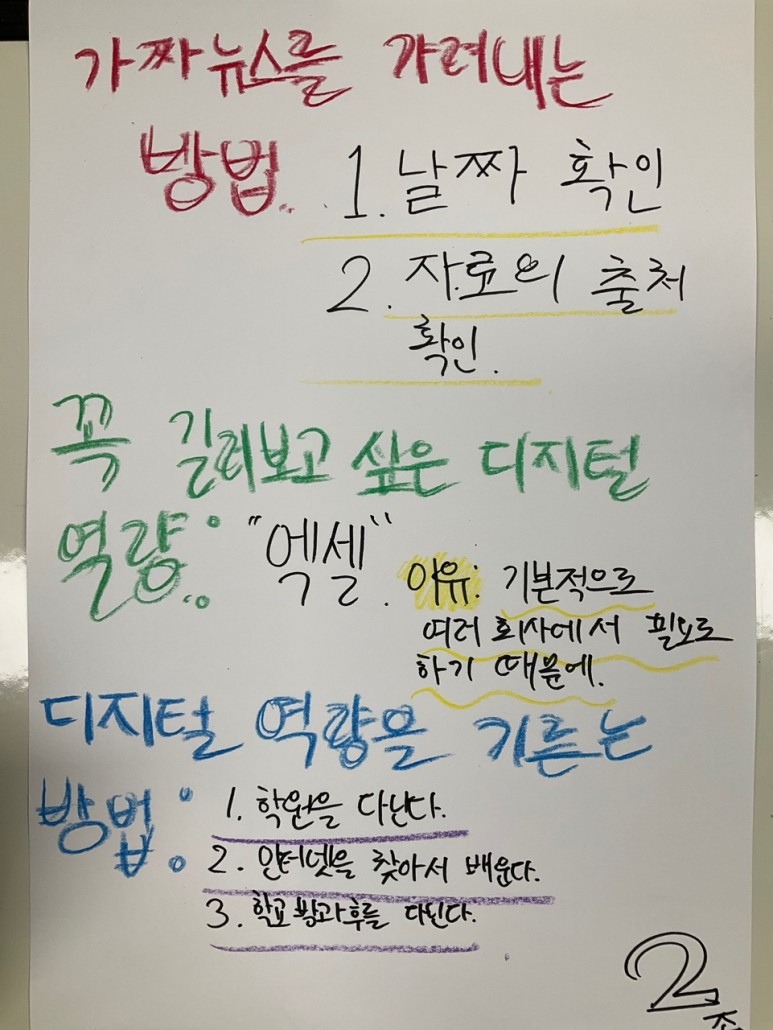 가짜 뉴스를 가려내는
방법.. 1. 날짜 확인
2. 자료의 출처
확인.
꼭 길러보고 싶은 디지털
역량: "엑셀". 이유: 기본적으로
여러 회사에서 필요로
하기 때문에.
디지털 역량을 기르는
방법: 1. 학원을 다닌다.
2. 인터넷을 찾아서 배운다.
3. 학교 방과후를 다닌다.
2조